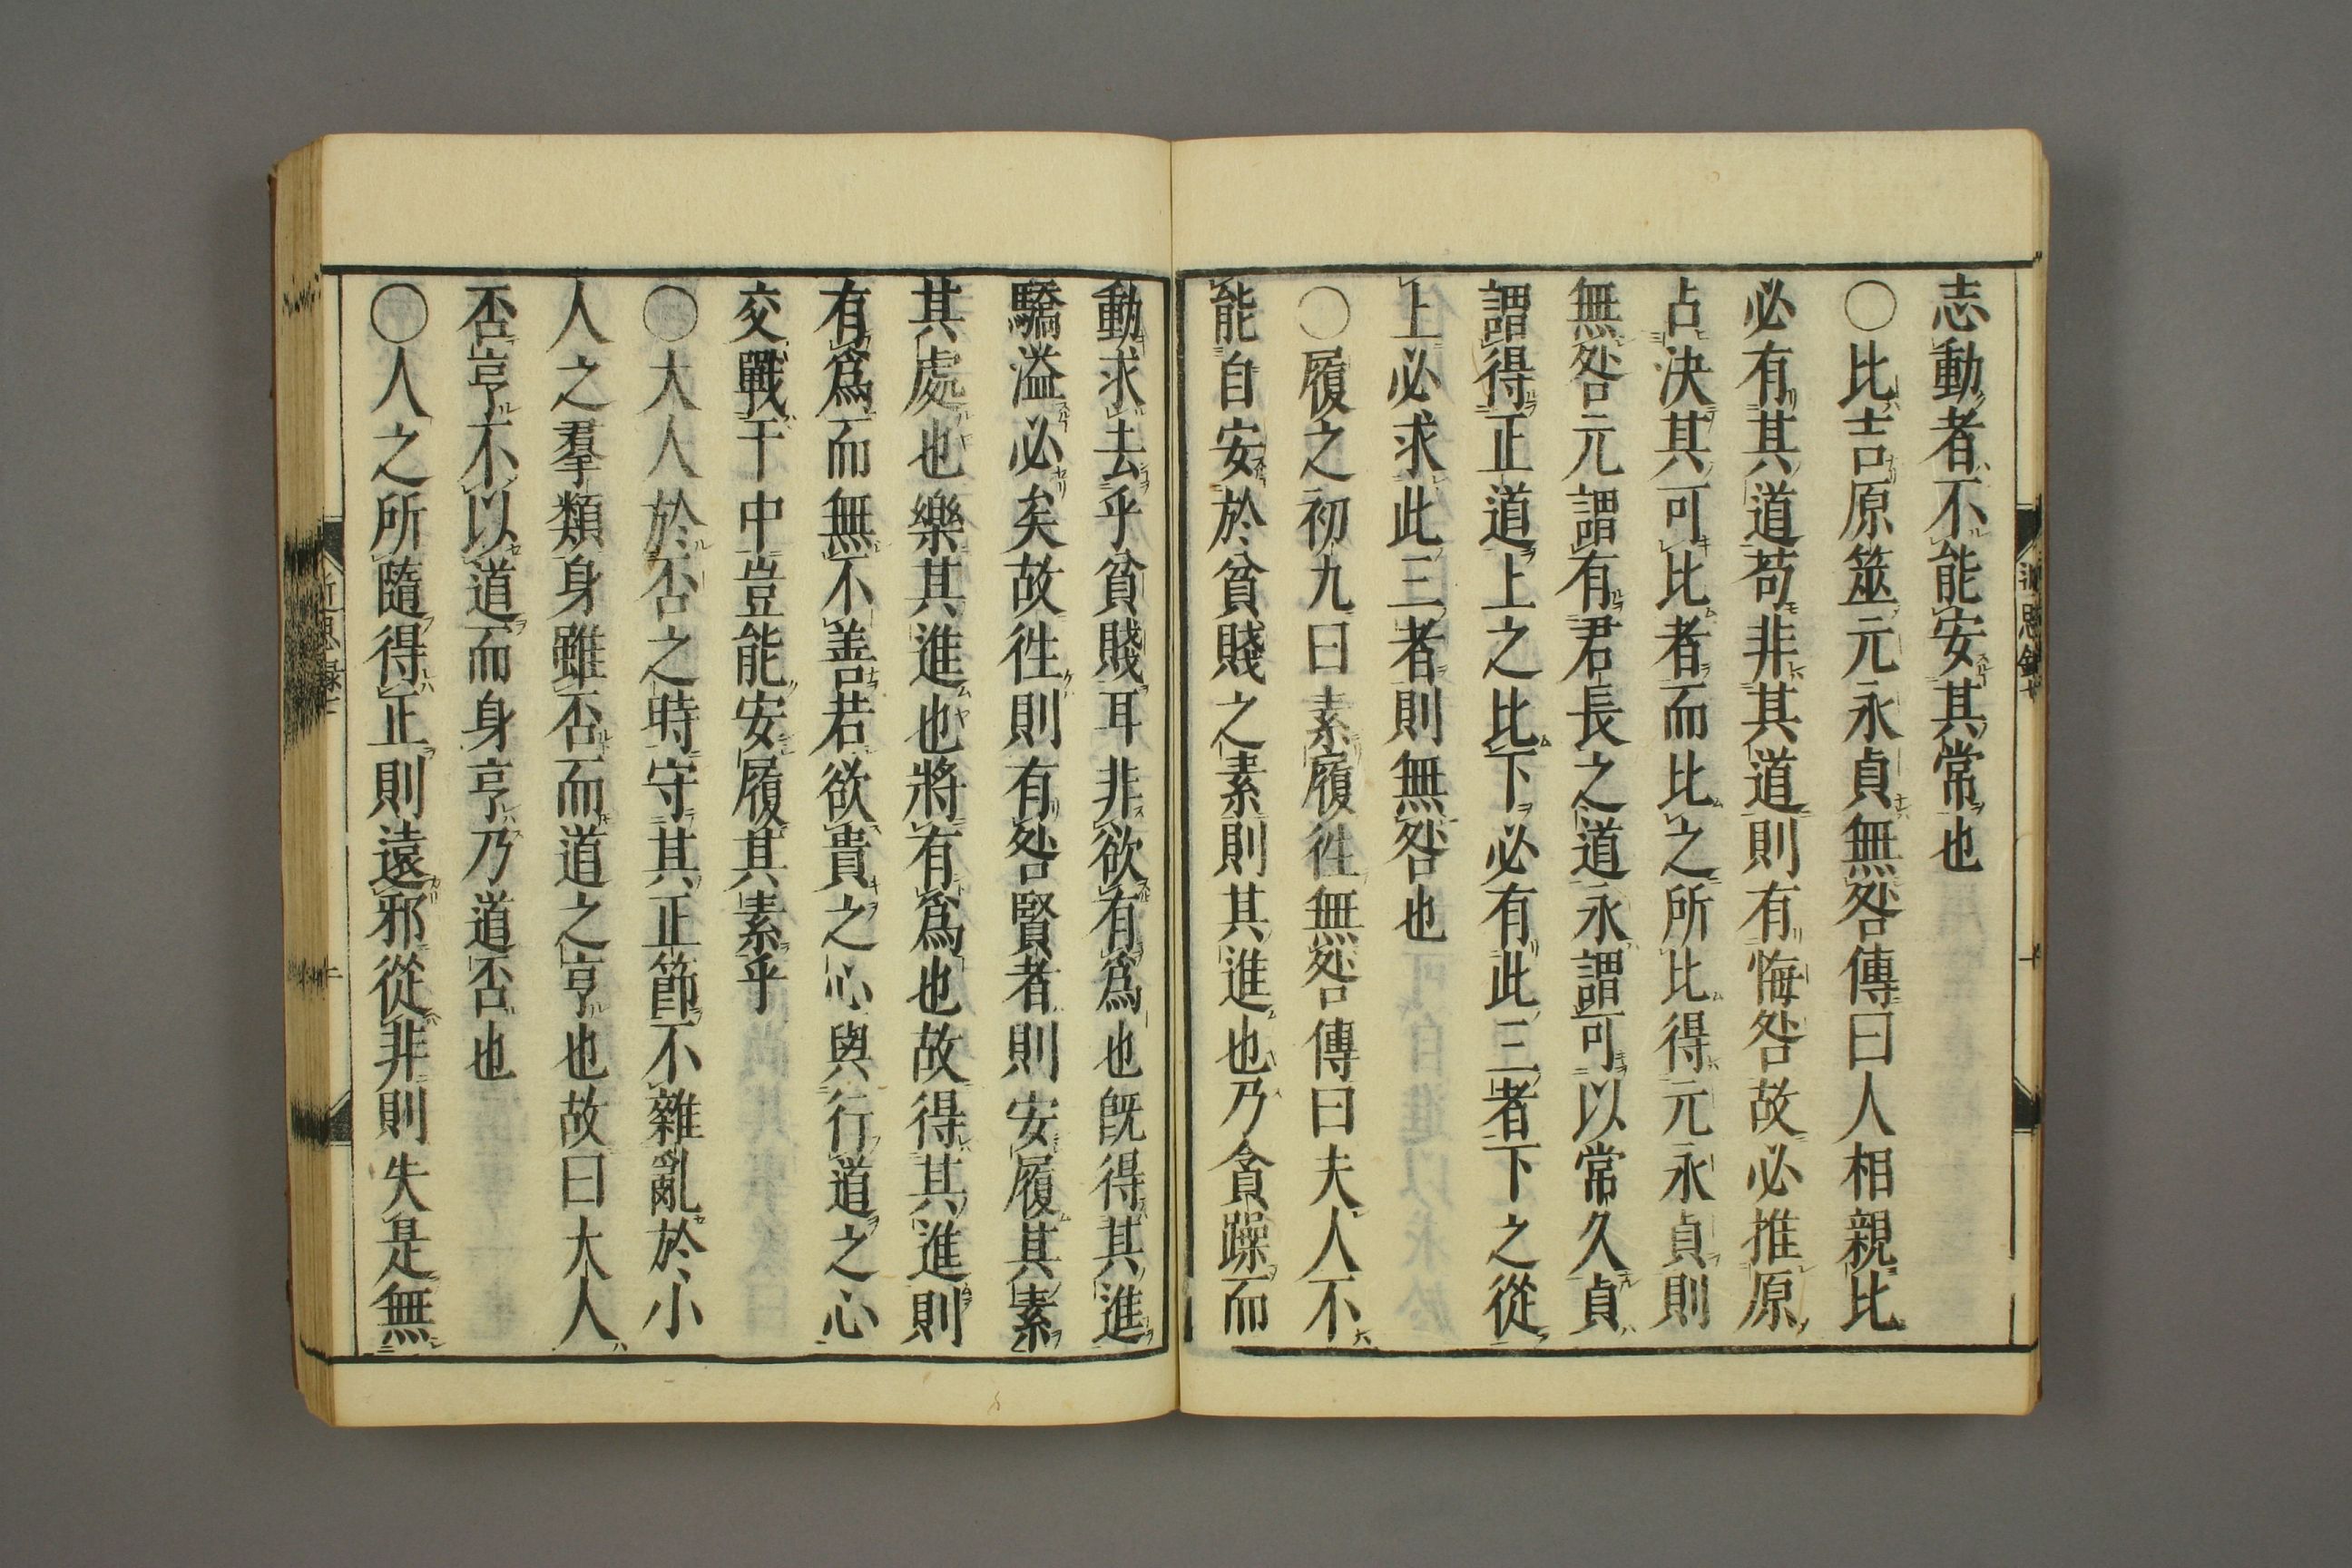 志動者不能安其常也
○比吉原筮元永貞無咎傳曰人相親比
必有其道苟非其道則有悔咎故必推原
占決其可比者而比之所比得元永貞則
無咎元謂有君長之道永謂可以常久貞
謂得正道上之比下必有此三者下之從
上必求此三者則無咎也
○履之初九曰素履徃無咎傳曰夫人不
能自安於貧賤之素則其進也乃貪躁而
動求去乎貧賤耳非欲有爲也旣得其進
驕溢必矣故徃則有咎賢者則安履其素
其處也樂其進也將有爲也故得其進則
有爲而無不善若欲貴之心與行道之心
交戰于中豈能安履其素乎
○大人於否之時守其正節不雜亂於小
人之羣類身雖否而道之亨也故曰大人
否亨不以道而身亨乃道否也
○人之所隨得正則遠邪從非則失是無
近思録七